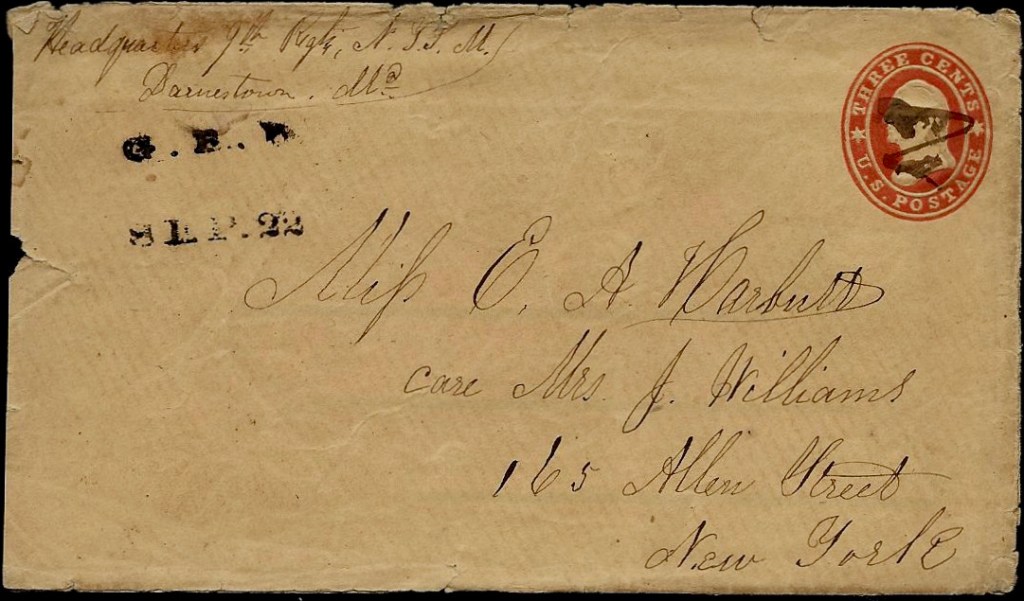 Headquarters 9th Regt, N.Y.S.M.
Darnestown. Md
THREE CENTS
U.S. POSTAGE
G. B. D
SEP. 22
Miss E. A. Harbutt
care Mrs. J. Williams
165 Allen Street
New York